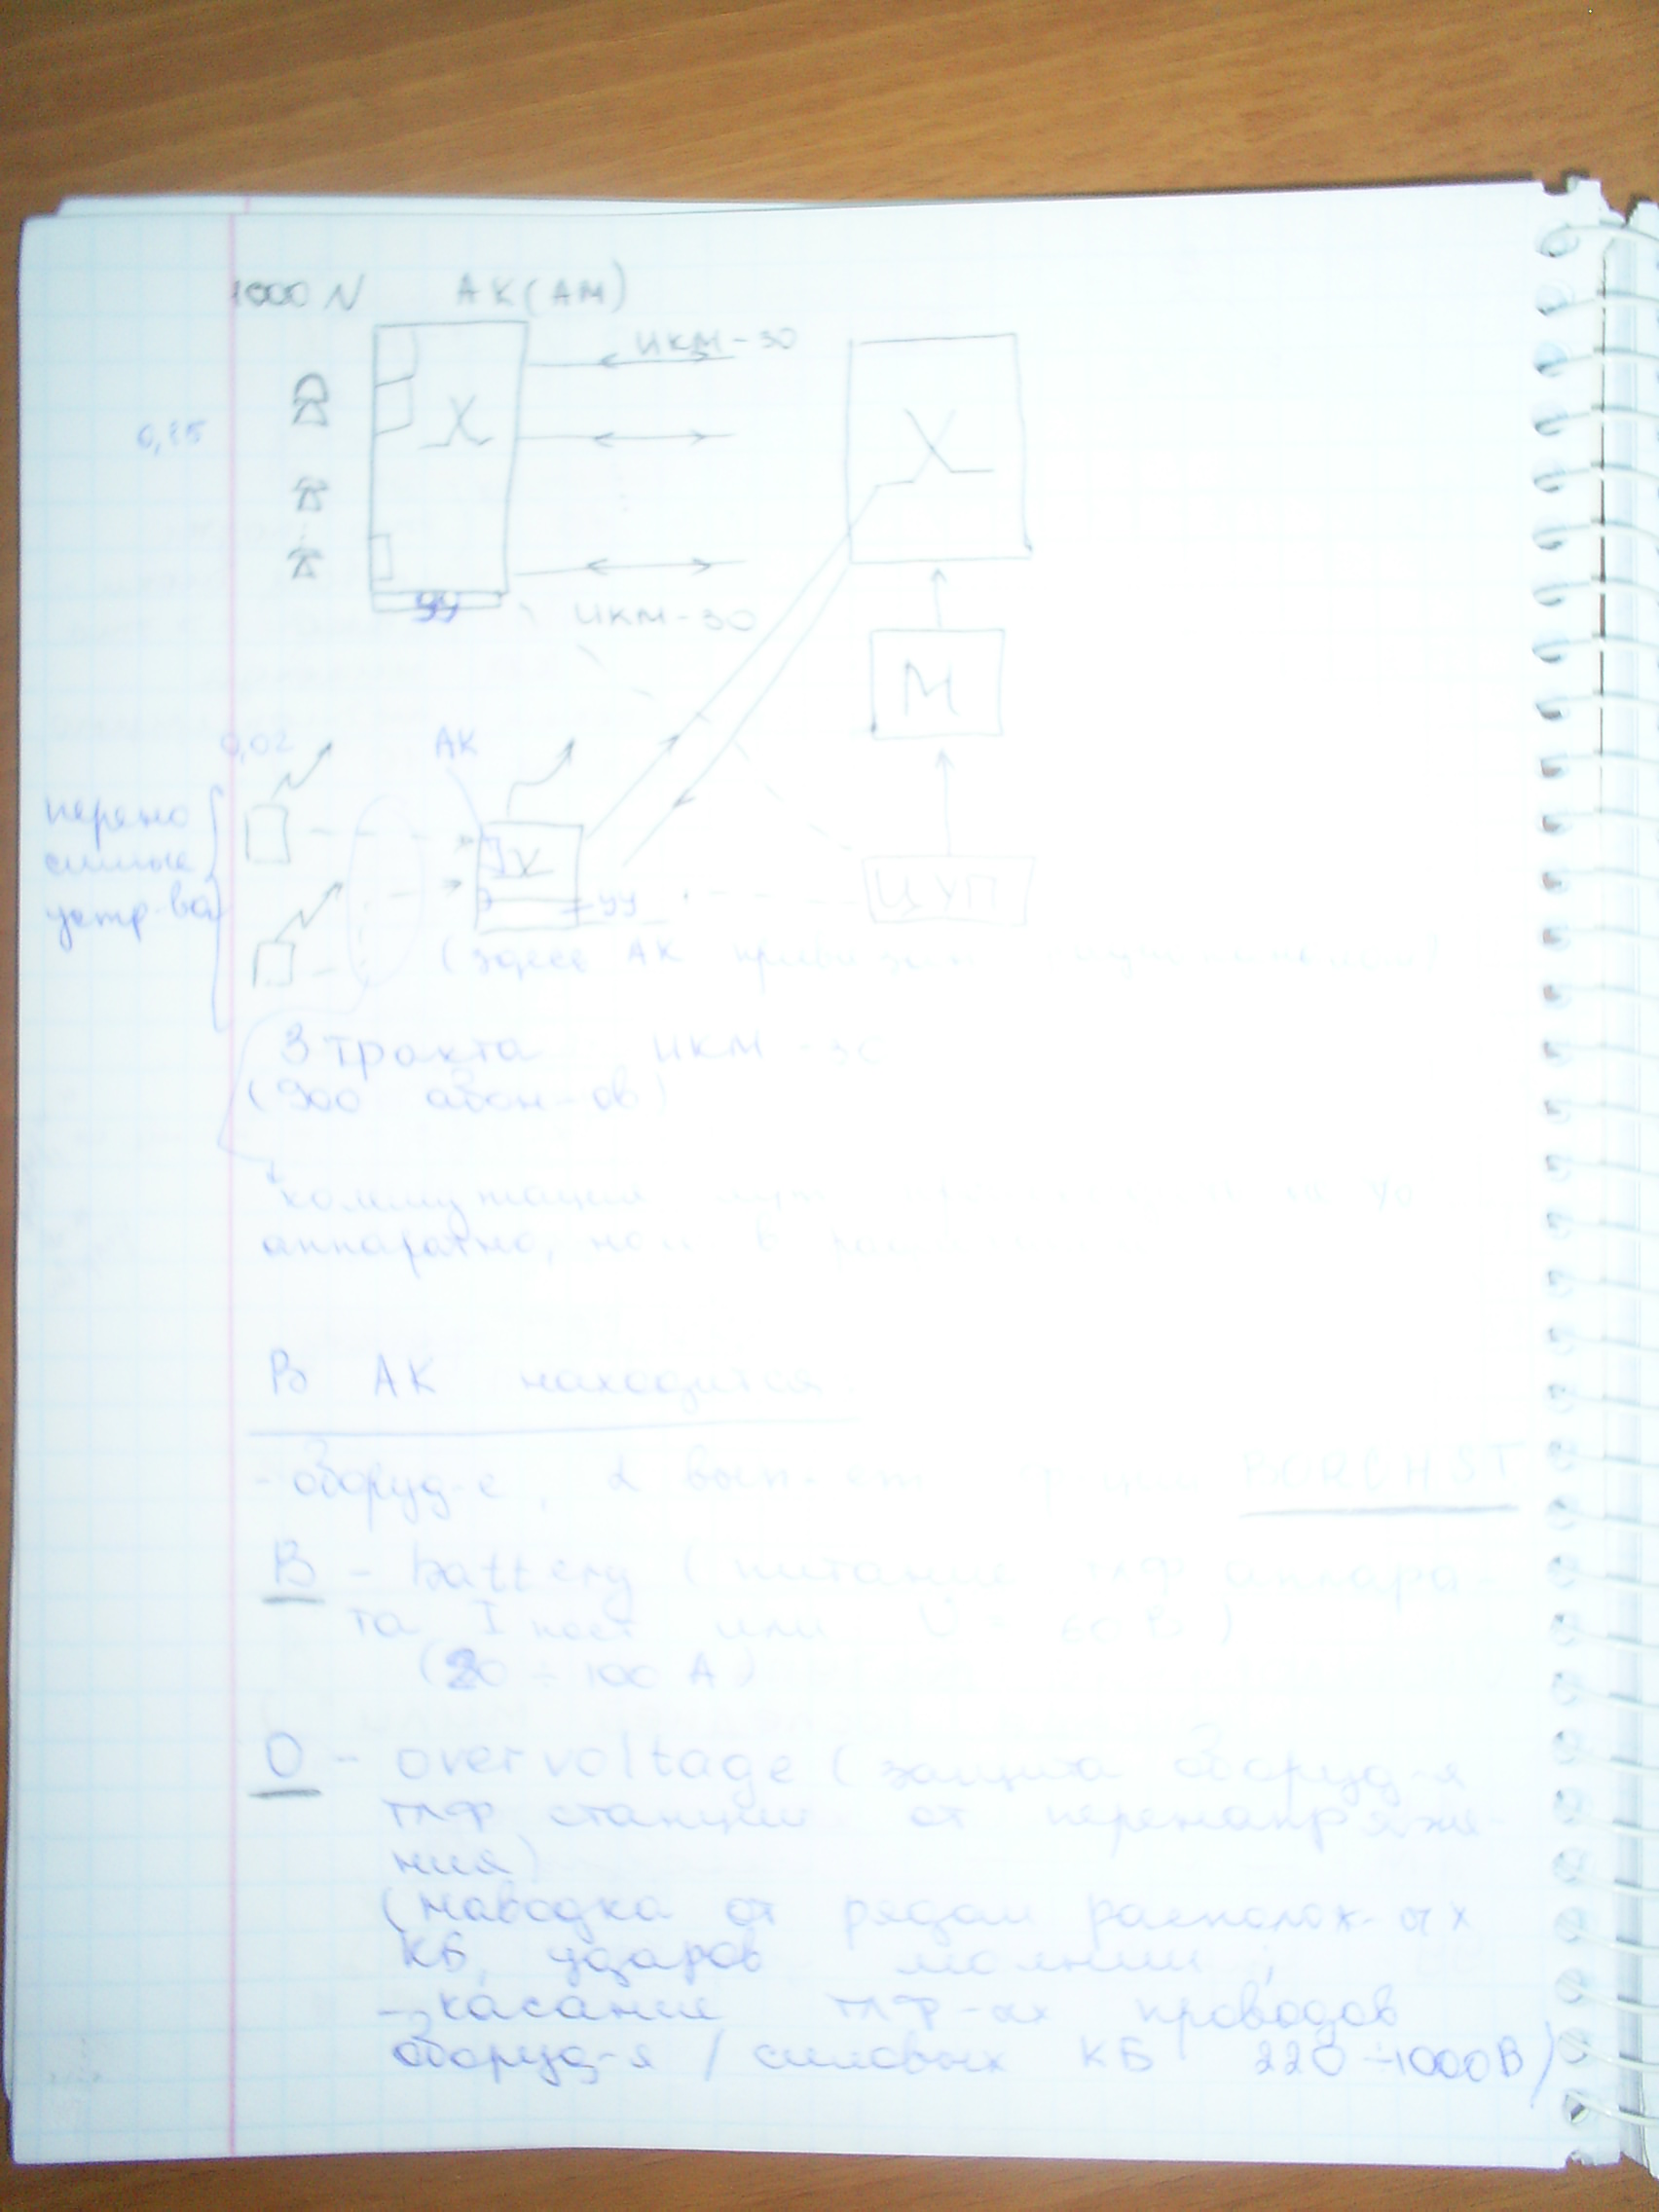 1000 N АК(АМ)
ИКМ-30
0,15
УУ
ИКМ-30
М
0,02 АК
перено
симые
устр-ва
УУ
ЦУП
(здесь АК
3 тракта ИКМ-30
(900 абон-ов)
коммутация
аппаратно, но и в
В АК находится
- оборуд-е, BORCHST
B - battery (питание тлф аппара-
та I пост или U = 60 В)
(20 ÷ 100 А)
O - overvoltage (защита оборуд-я
тлф станции от перенапряже-
ния)
(наводка от рядом располож-ых
КБ, ударов молнии,
- касание тлф-ых проводов
оборуд-я / силовых КБ 220÷1000В)